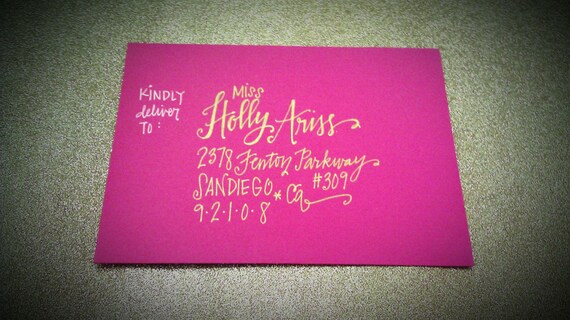 KINDLY
deliver
TO:
MISS
Holly Ariss
2378 Fenton Parkway
#309
SANDIEGO * Ca
9·2·1·0·8